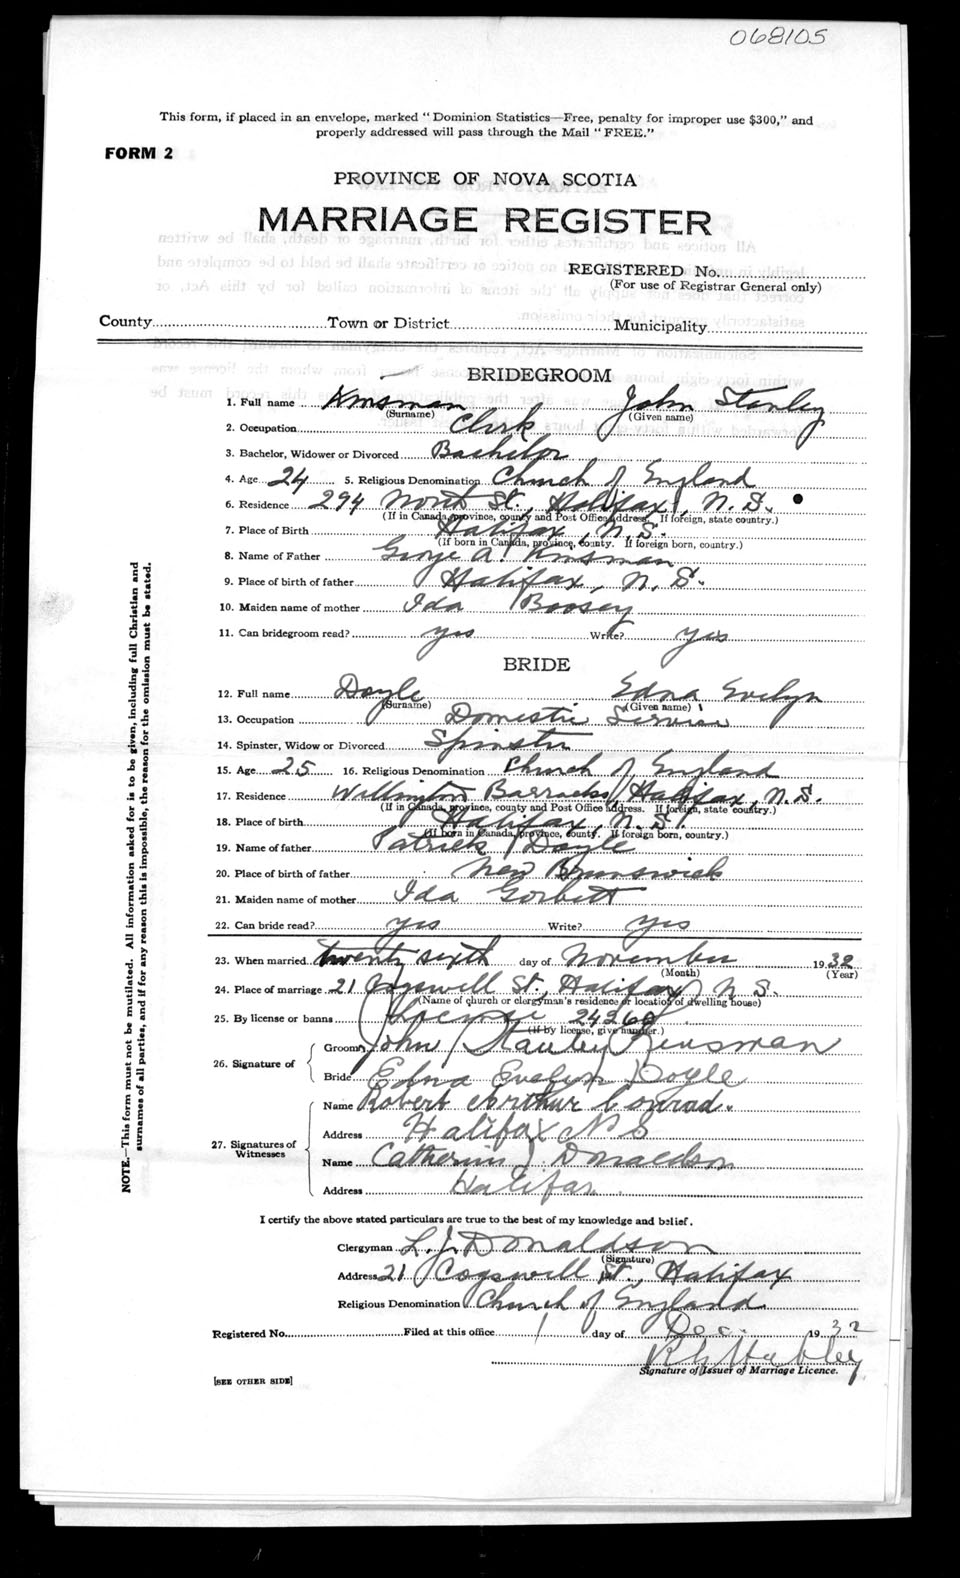 068105
This form, if placed in an envelope, marked "Dominion Statistics—Free, penalty for improper use $300," and
properly addressed will pass through the Mail "FREE."
FORM 2
PROVINCE OF NOVA SCOTIA
MARRIAGE REGISTER
REGISTERED No.
(For use of Registrar General only)
County Town or District Municipality
BRIDEGROOM
1. Full name Kinsman John Stanley
(Surname) (Given name)
2. Occupation Clerk
3. Bachelor, Widower or Divorced Bachelor
4. Age 24 5. Religious Denomination Church of England
6. Residence 294 North St., Halifax, N.S.
(If in Canada, province, county and Post Office address. If foreign, state country.)
7. Place of Birth Halifax, N.S.
(If born in Canada, province, county. If foreign born, country.)
8. Name of Father George A. Kinsman
9. Place of birth of father Halifax, N.S.
10. Maiden name of mother Ida Boosey
11. Can bridegroom read? yes Write? yes
BRIDE
12. Full name Doyle Edna Evelyn
(Surname) (Given name)
13. Occupation Domestic Service
14. Spinster, Widow or Divorced Spinster
15. Age 25 16. Religious Denomination Church of England
17. Residence Wellington Barracks, Halifax, N.S.
(If in Canada, province, county and Post Office address. If foreign, state country.)
18. Place of birth Halifax, N.S.
(If born in Canada, province, county. If foreign born, country.)
19. Name of father Patrick Doyle
20. Place of birth of father New Brunswick
21. Maiden name of mother Ida Gorbett
22. Can bride read? yes Write? yes
23. When married twenty sixth day of November 1932
(Month) (Year)
24. Place of marriage 21 Cogswell St., Halifax, N.S.
(Name of church or clergyman's residence or location of dwelling house)
25. By license or banns License 24260
(If by license, give number.)
26. Signature of
Groom John Stanley Kinsman
Bride Edna Evelyn Doyle
27. Signatures of Witnesses
Name Robert Arthur Conrad.
Address Halifax N S
Name Catherine Donaldson
Address Halifax
I certify the above stated particulars are true to the best of my knowledge and belief.
Clergyman L. J. Donaldson
(Signature)
Address 21 Cogswell St., Halifax
Religious Denomination Church of England
Registered No. Filed at this office 1 day of Dec. 1932
Signature of Issuer of Marriage Licence.
[SEE OTHER SIDE]
NOTE.—This form must not be mutilated. All information asked for is to be given, including full Christian and
surnames of all parties, and if for any reason this is impossible, the reason for the omission must be stated.